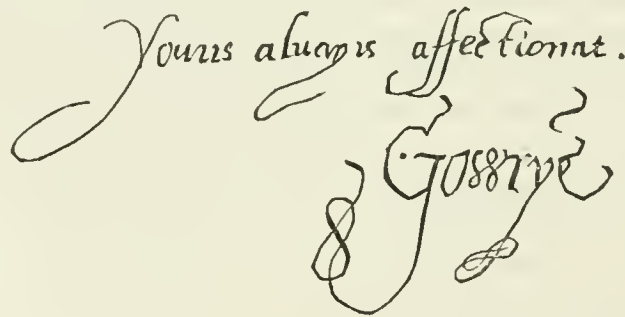 Youris aluayis affectionat.
Gowrye